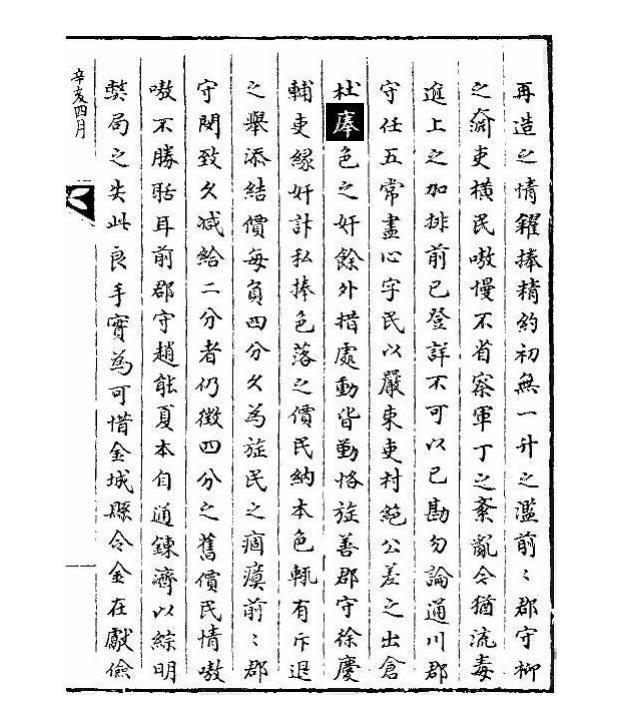 再造之情糴捧精約初無一升之濫前〻郡守柳
之 吏橫民嗷慢不省察軍丁之紊亂令猶流毒
 上之加排前已登詳不可以已勘勿論通川郡
守任五常盡心字民以嚴束吏村絶公差之出倉
杜 色之奸餘外措處動皆勤恪旌善郡守徐慶
輔吏緣奸計私捧色落之價民納本色輒有斥退
之擧添結價每負四分久為旌民之痼瘼前〻郡
守閔致久减給二分者仍徵四分之舊價民情嗷
嗷不勝聒耳前郡守趙能夏本自通鍊濟以綜明
獘局之失此良手實為可惜金城縣令金在獻儉
辛亥四月